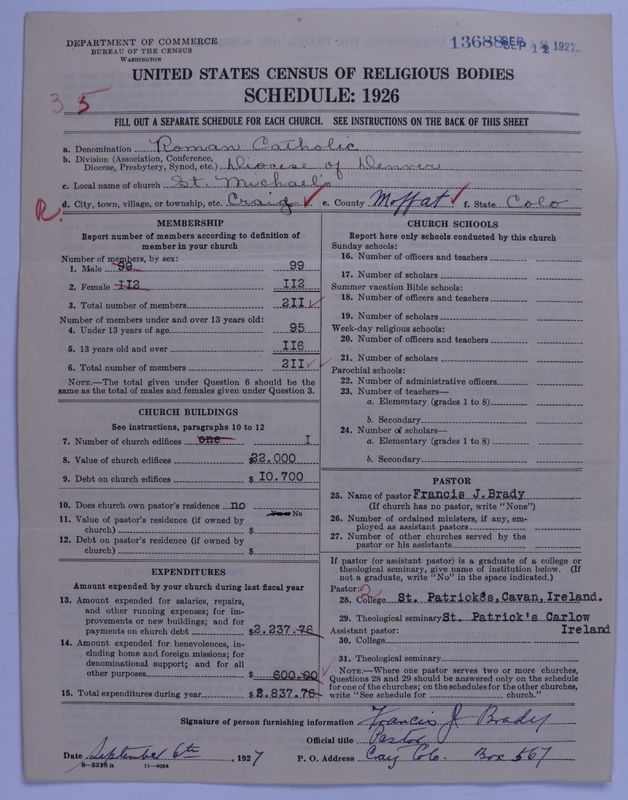 DEPARTMENT OF COMMERCE
BUREAU OF THE CENSUS
WASHINGTON
13688 SEP 12 1927
UNITED STATES CENSUS OF RELIGIOUS BODIES
SCHEDULE: 1926
35
FILL OUT A SEPARATE SCHEDULE FOR EACH CHURCH. SEE INSTRUCTIONS ON THE BACK OF THIS SHEET
a. Denomination Roman Catholic
b. Division (Association, Conference, Diocese, Presbytery, Synod, etc.) Diocese of Denver
c. Local name of church St. Michael's
R. d. City, town, village, or township, etc. Craig e. County Moffat f. State Colo
MEMBERSHIP
Report number of members according to definition of
member in your church
Number of members, by sex:
1. Male 99 99
2. Female 112 112
3. Total number of members 211
Number of members under and over 13 years old:
4. Under 13 years of age 95
5. 13 years old and over 116
6. Total number of members 211
NOTE.—The total given under Question 6 should be
same as the total of males and females given under Question 3.
CHURCH BUILDINGS
See instructions, paragraphs 10 to 12
7. Number of church edifices one 1
8. Value of church edifices $22.000
9. Debt on church edifices $10.700
10. Does church own pastor's residence no
Yes or No
11. Value of pastor's residence (if owned by
church) $
12. Debt on pastor's residence (if owned by
church) $
EXPENDITURES
Amount expended by your church during last fiscal year
13. Amount expended for salaries, repairs,
and other running expenses; for im-
provements or new buildings; and for
payments on church debt $2.237.76
14. Amount expended for benevolences, in-
cluding home and foreign missions; for
denominational support; and for all
other purposes $600.00
15. Total expenditures during year $2.837.76
CHURCH SCHOOLS
Report here only schools conducted by this church
Sunday schools:
16. Number of officers and teachers
17. Number of scholars
Summer vacation Bible schools:
18. Number of officers and teachers
19. Number of scholars
Week-day religious schools:
20. Number of officers and teachers
21. Number of scholars
Parochial schools:
22. Number of administrative officers
23. Number of teachers—
a. Elementary (grades 1 to 8)
b. Secondary
24. Number of scholars—
a. Elementary (grades 1 to 8)
b. Secondary
PASTOR
25. Name of pastor Francis J. Brady
(If church has no pastor, write "None")
26. Number of ordained ministers, if any, em-
ployed as assistant pastors
27. Number of other churches served by the
pastor or his assistants
If pastor (or assistant pastor) is a graduate of a college or
theological seminary, give name of institution below. (If
not a graduate, write "No" in the space indicated.)
Pastor: 2
28. College St. Patrick's, Cavan, Ireland.
29. Theological seminary St. Patrick's Carlow
Assistant pastor: Ireland
30. College
31. Theological seminary
NOTE.—Where one pastor serves two or more churches,
Questions 28 and 29 should be answered only on the schedule
for one of the churches; on the schedules for the other churches,
write "See schedule for church."
Signature of person furnishing information Francis J Brady
Official title Pastor
Date September 6th, 1927 P. O. Address Craig Colo. Box 567
8—5318 a 11—9054